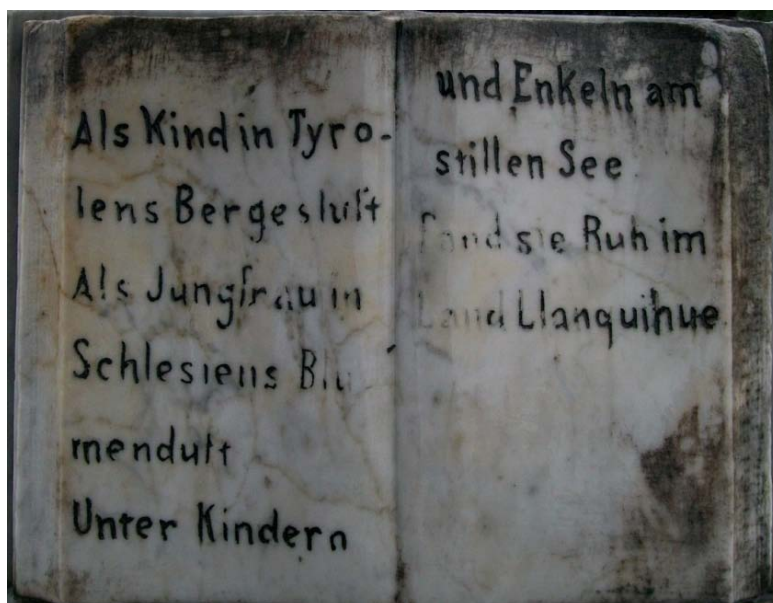 Als Kind in Tyro-
lens Bergesluft
Als Jungfrau in
Schlesiens Blu
menduft
Unter Kindern
und Enkeln am
stillen See
fand sie Ruh im
Land Llanquihue.